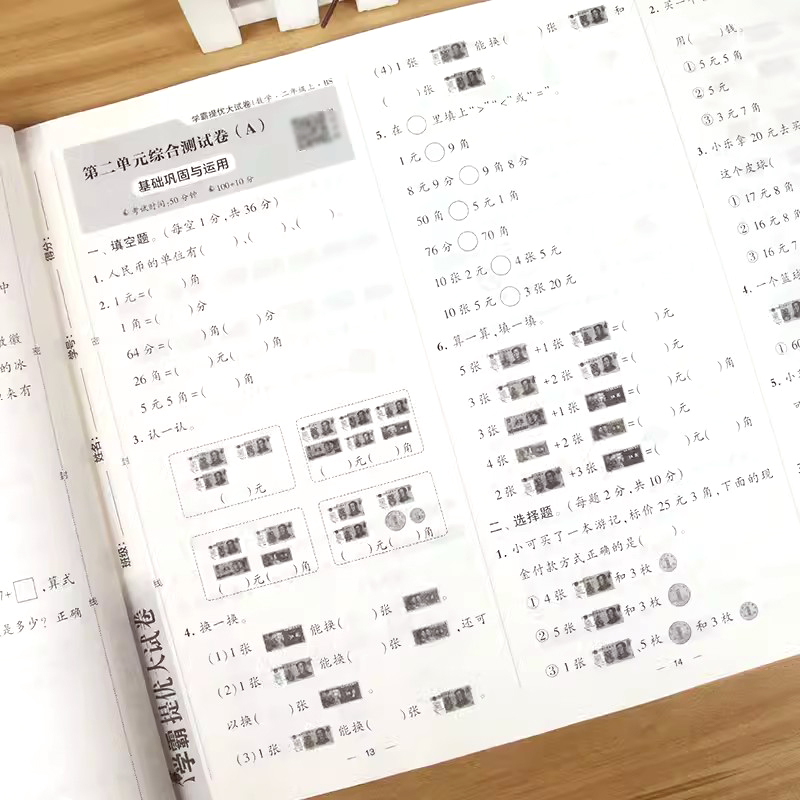 学霸提优大试卷 数学·二年级上·BS
第二单元综合测试卷(A)
基础巩固与运用
考试时间:50分钟 100+10分
一、填空题。(每空1分,共36分)
1. 人民币的单位有( )、( )、( )。
2. 1元=( )角
1角=( )分
64分=( )角( )分
26角=( )元( )角
5元5角=( )角
3. 认一认。
( )元
( )元( )角
( )元( )角
( )元( )角
4. 换一换。
(1)1张 能换( )张 。
(2)1张 能换( )张 ,还可
以换( )张 。
(3)1张 能换( )张 。
13
(4)1张 能换( )张 和
( )张 。
5. 在○里填上“>”“<”或“=”。
1元○9角
8元9分○9角8分
50角○5元1角
76分○70角
10张2元○4张5元
10张5元○3张20元
6. 算一算,填一填。
5张 +1张 =( )元
3张 +2张 =( )元
3张 +1张 =( )元( )角
4张 +2张 =( )元
2张 +3张 =( )元( )角
二、选择题。(每题2分,共10分)
1. 小可买了一本游记,标价25元3角,下面的现
金付款方式正确的是( )。
①4张 和3枚
②5张 和3枚
③1张 、5枚 和3枚
14
2. 买一个
用( )钱。
①5元5角
②5元
③3元7角
3. 小乐拿20元去买
这个皮球(
①17元8角
②16元8
③16元7
4. 一个篮球
①60
得分:
学号:
姓名:
班级:
密
封
线
学霸提优大试卷
中
的冰
来有
7+□,算式
是多少?正确